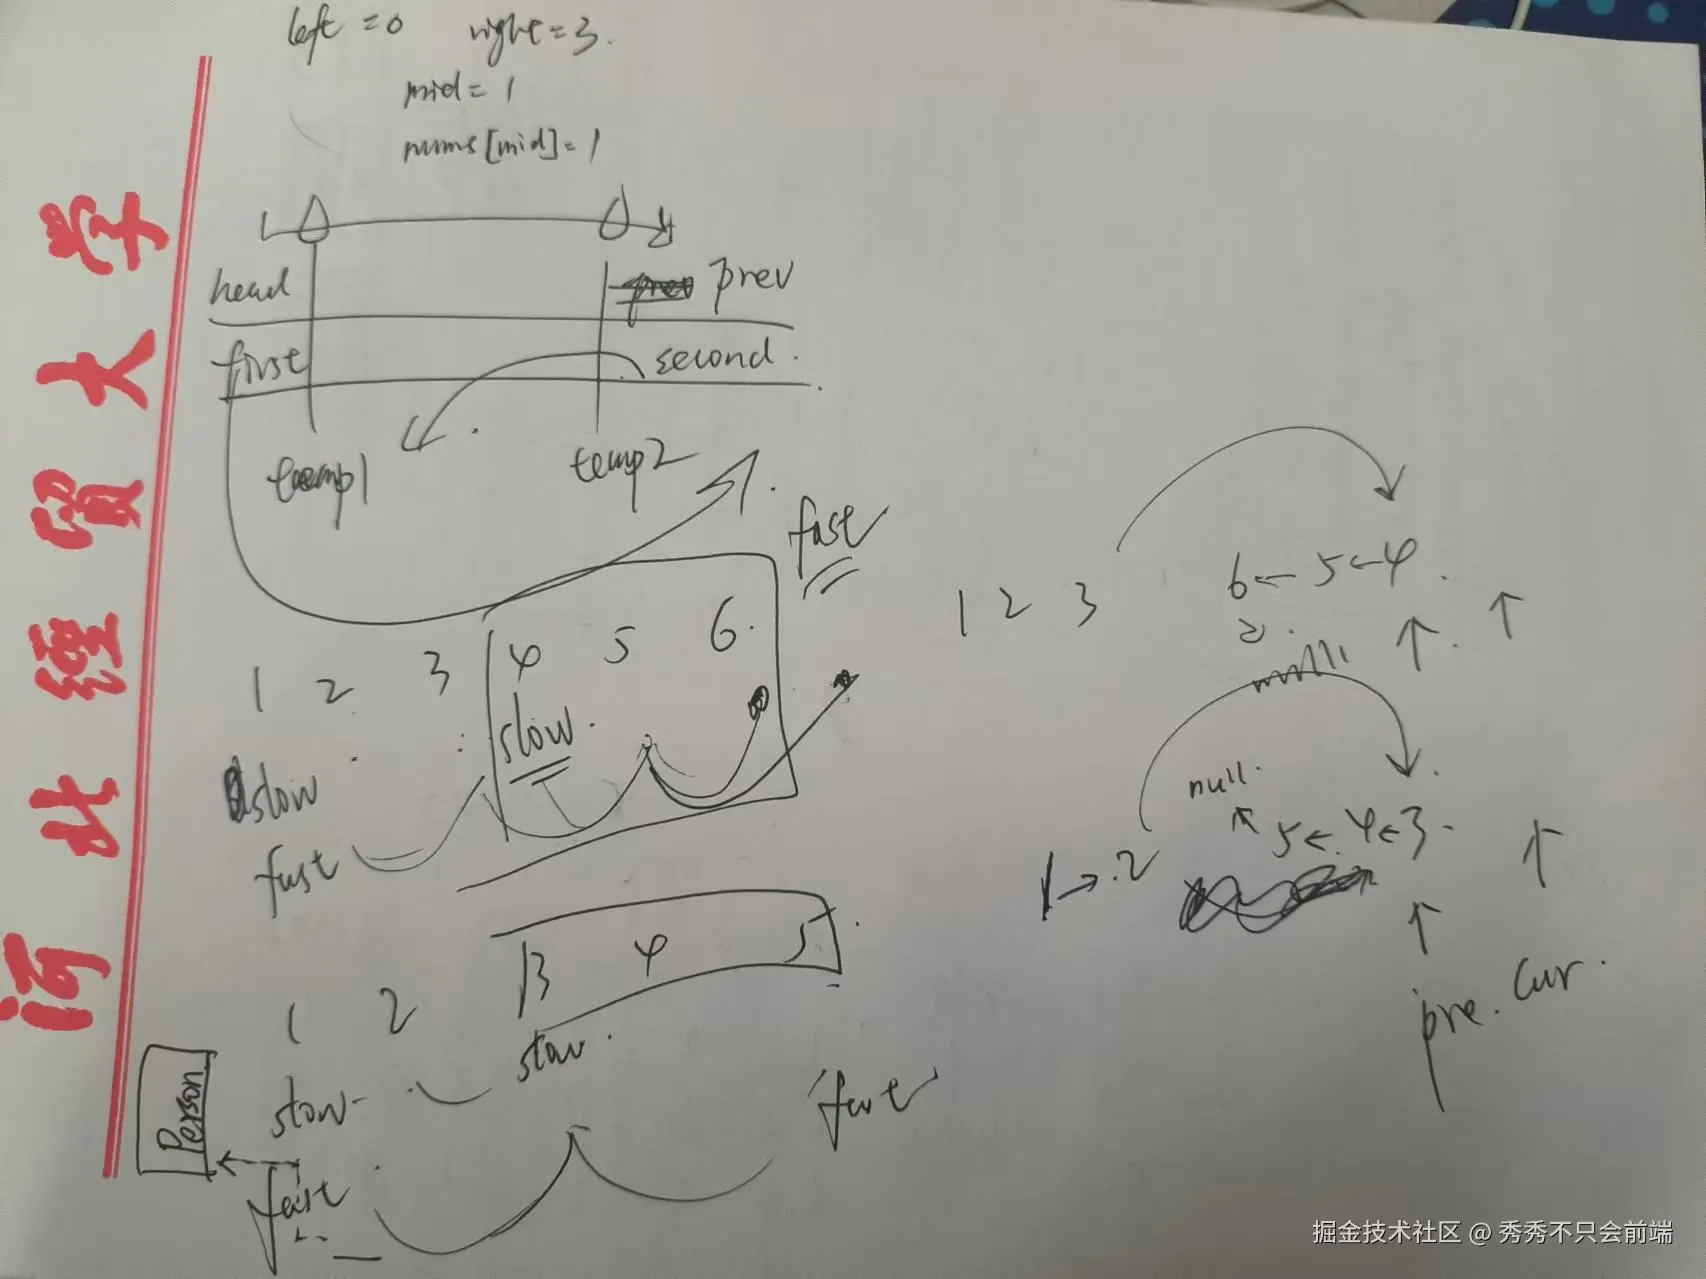 left = 0 right = 3.
mid = 1
nums[mid] = 1
head prev
first second.
temp1 temp2
fast
1 2 3 4 5 6.
slow.
slow
fast
1 2 3 4 5
slow.
slow
fast
fast
Person
1 2 3 6←5←4
null
null
1→2 5←4←3
pre. cur.
河北經貿大学
掘金技术社区 @ 秀秀不只会前端